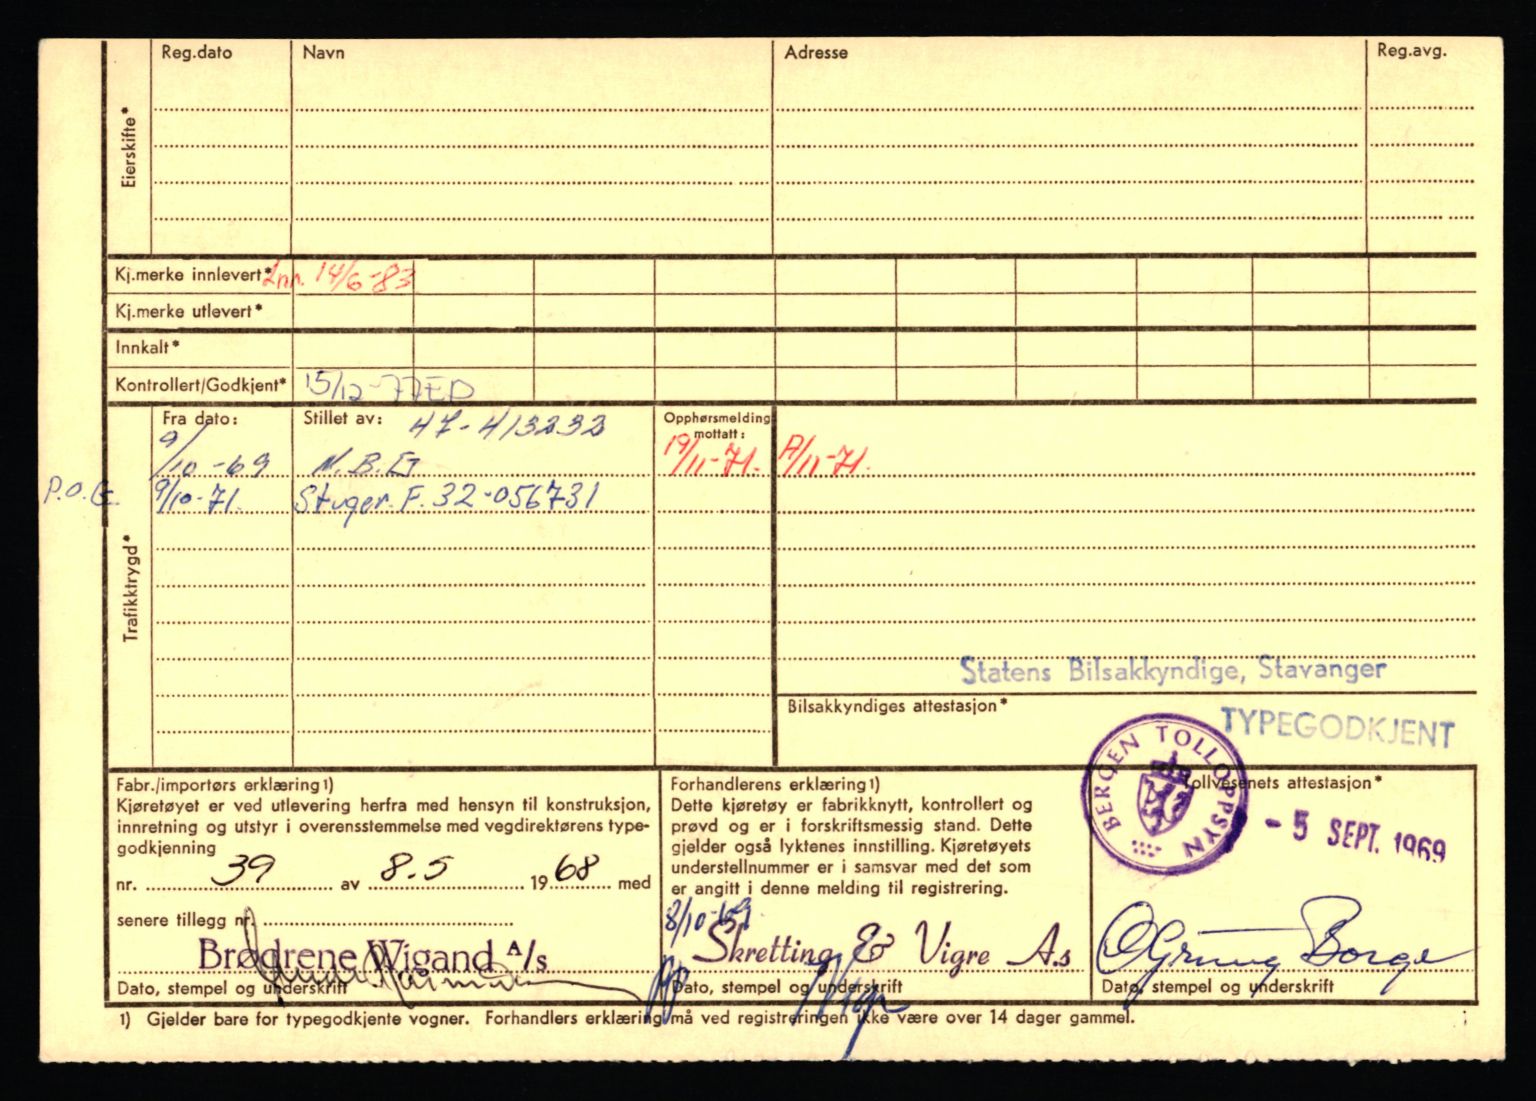 Reg.dato Navn Adresse Reg.avg.
Eierskifte*
Kj.merke innlevert* Inn. 14/6-83
Kj.merke utlevert*
Innkalt*
Kontrollert/Godkjent* 15/12-77 ED
Trafikktrygd*
Fra dato: Stillet av: 47-413232 Opphørsmelding mottatt:
9/10-69 N.B.G 19/11-71. A/11-71.
P.O.G. 9/10-71. Stuger. F. 32-056731
Statens Bilsakkyndige, Stavanger
Bilsakkyndiges attestasjon*
TYPEGODKJENT
BERGEN TOLLOPPSYN
Fabr./importørs erklæring 1)
Kjøretøyet er ved utlevering herfra med hensyn til konstruksjon,
innretning og utstyr i overensstemmelse med vegdirektørens type-
godkjenning
nr. 39 av 8.5 1968 med
senere tillegg nr.
Brødrene Wigand A/s
Dato, stempel og underskrift
Forhandlerens erklæring 1)
Dette kjøretøy er fabrikknytt, kontrollert og
prøvd og er i forskriftsmessig stand. Dette
gjelder også lyktenes innstilling. Kjøretøyets
understellnummer er i samsvar med det som
er angitt i denne melding til registrering.
8/10-69
Skretting & Vigre A.s
Dato, stempel og underskrift
Tollvesenets attestasjon*
- 5 SEPT. 1969
Dato, stempel og underskrift
1) Gjelder bare for typegodkjente vogner. Forhandlers erklæring må ved registreringen ikke være over 14 dager gammel.